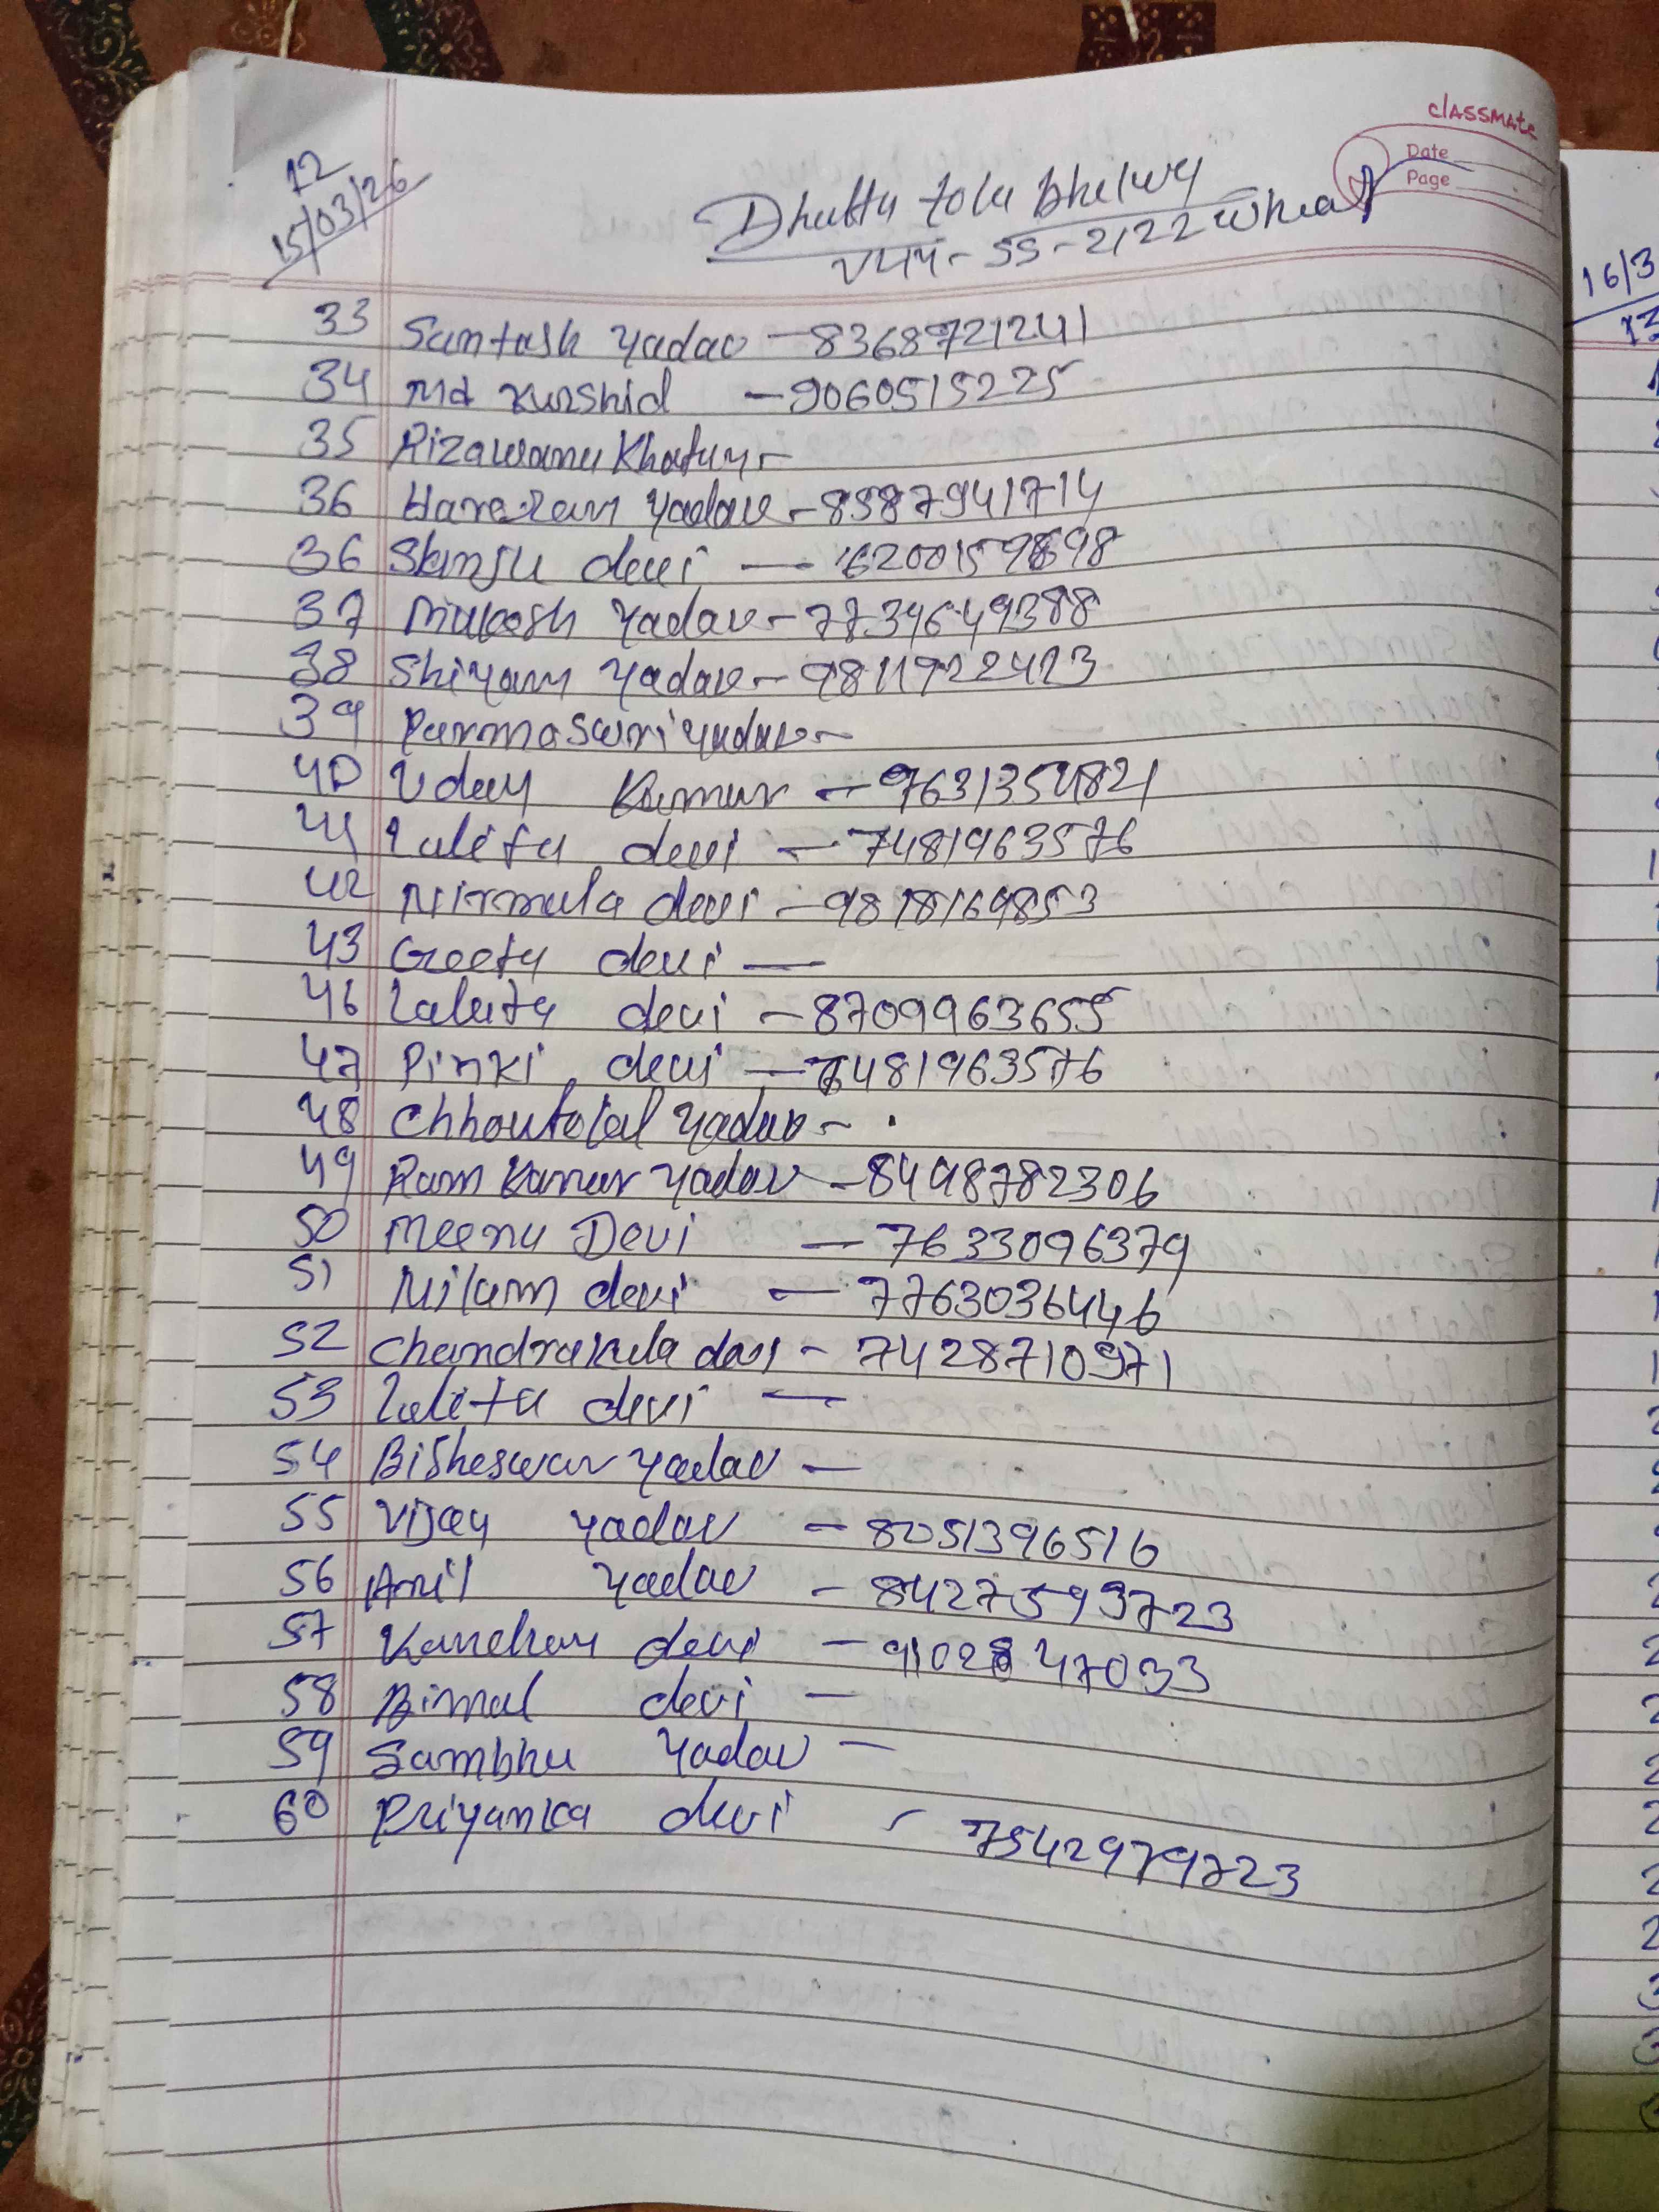 classmate
Date
Page
12
15/03/26
Dhutta tola bhelwa
V44- SS-2122 Wheat
33 Santash Yadav - 8368721241
34 Md Kurshid - 9060515225
35 Rizawanu Khatun -
36 Hareram Yadav - 8587941714
36 devi -
37 Mukesh Yadav - 7739649388
38 Shiyam Yadav - 9811922423
39 Parmaswri Yadav -
40 Uday Kumar - 9631354821
41 Lalita devi - 7481963576
42 Nirmala devi - 9818169853
43 Geeta devi -
46 Lalita devi - 8709963655
47 Pinki devi - 7481963576
48 Chhoutolal Yadav -
49 Ram Kumar Yadav - 8498782306
50 Meena Devi - 7633096379
51 Nilam devi - 7763036446
52 Chandrakala devi - 7428710971
53 Lalita devi -
54 Bisheswar Yadav -
55 Vijay Yadav - 8051396516
56 Anil Yadav - 8427593723
57 Kanchan devi - 9102847033
58 Bimal devi -
59 Sambhu Yadav -
60 Priyanka devi - 7542979723
16/3